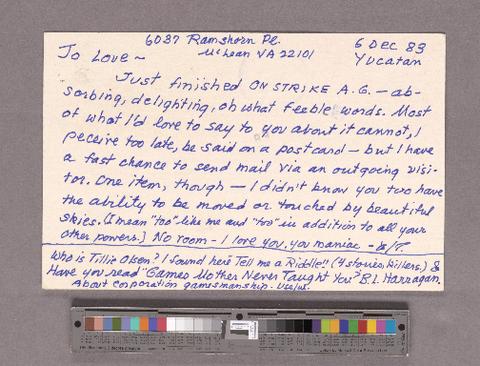 6037 Ramshorn Pl.
McLean VA 22101
6 DEC 83
Yucatan
Jo Love ~
Just finished ON STRIKE A.G. — ab-
sorbing, delighting, oh what feeble words. Most
of what I'd love to say to you about it cannot, I
peceive too late, be said on a postcard — but I have
a fast chance to send mail via an outgoing visi-
tor. One item, though — I didn't know you too have
the ability to be moved or touched by beautiful
skies. (I mean "too" like me and "too" in addition to all your
other powers.) No room - I love you, you maniac -
Who is Tillie Olsen? I found here Tell me a Riddle!! (4 stories, killers.) &
Have you read "Games Mother Never Taught You" B.L. Harragan.
About corporation gamesmanship.